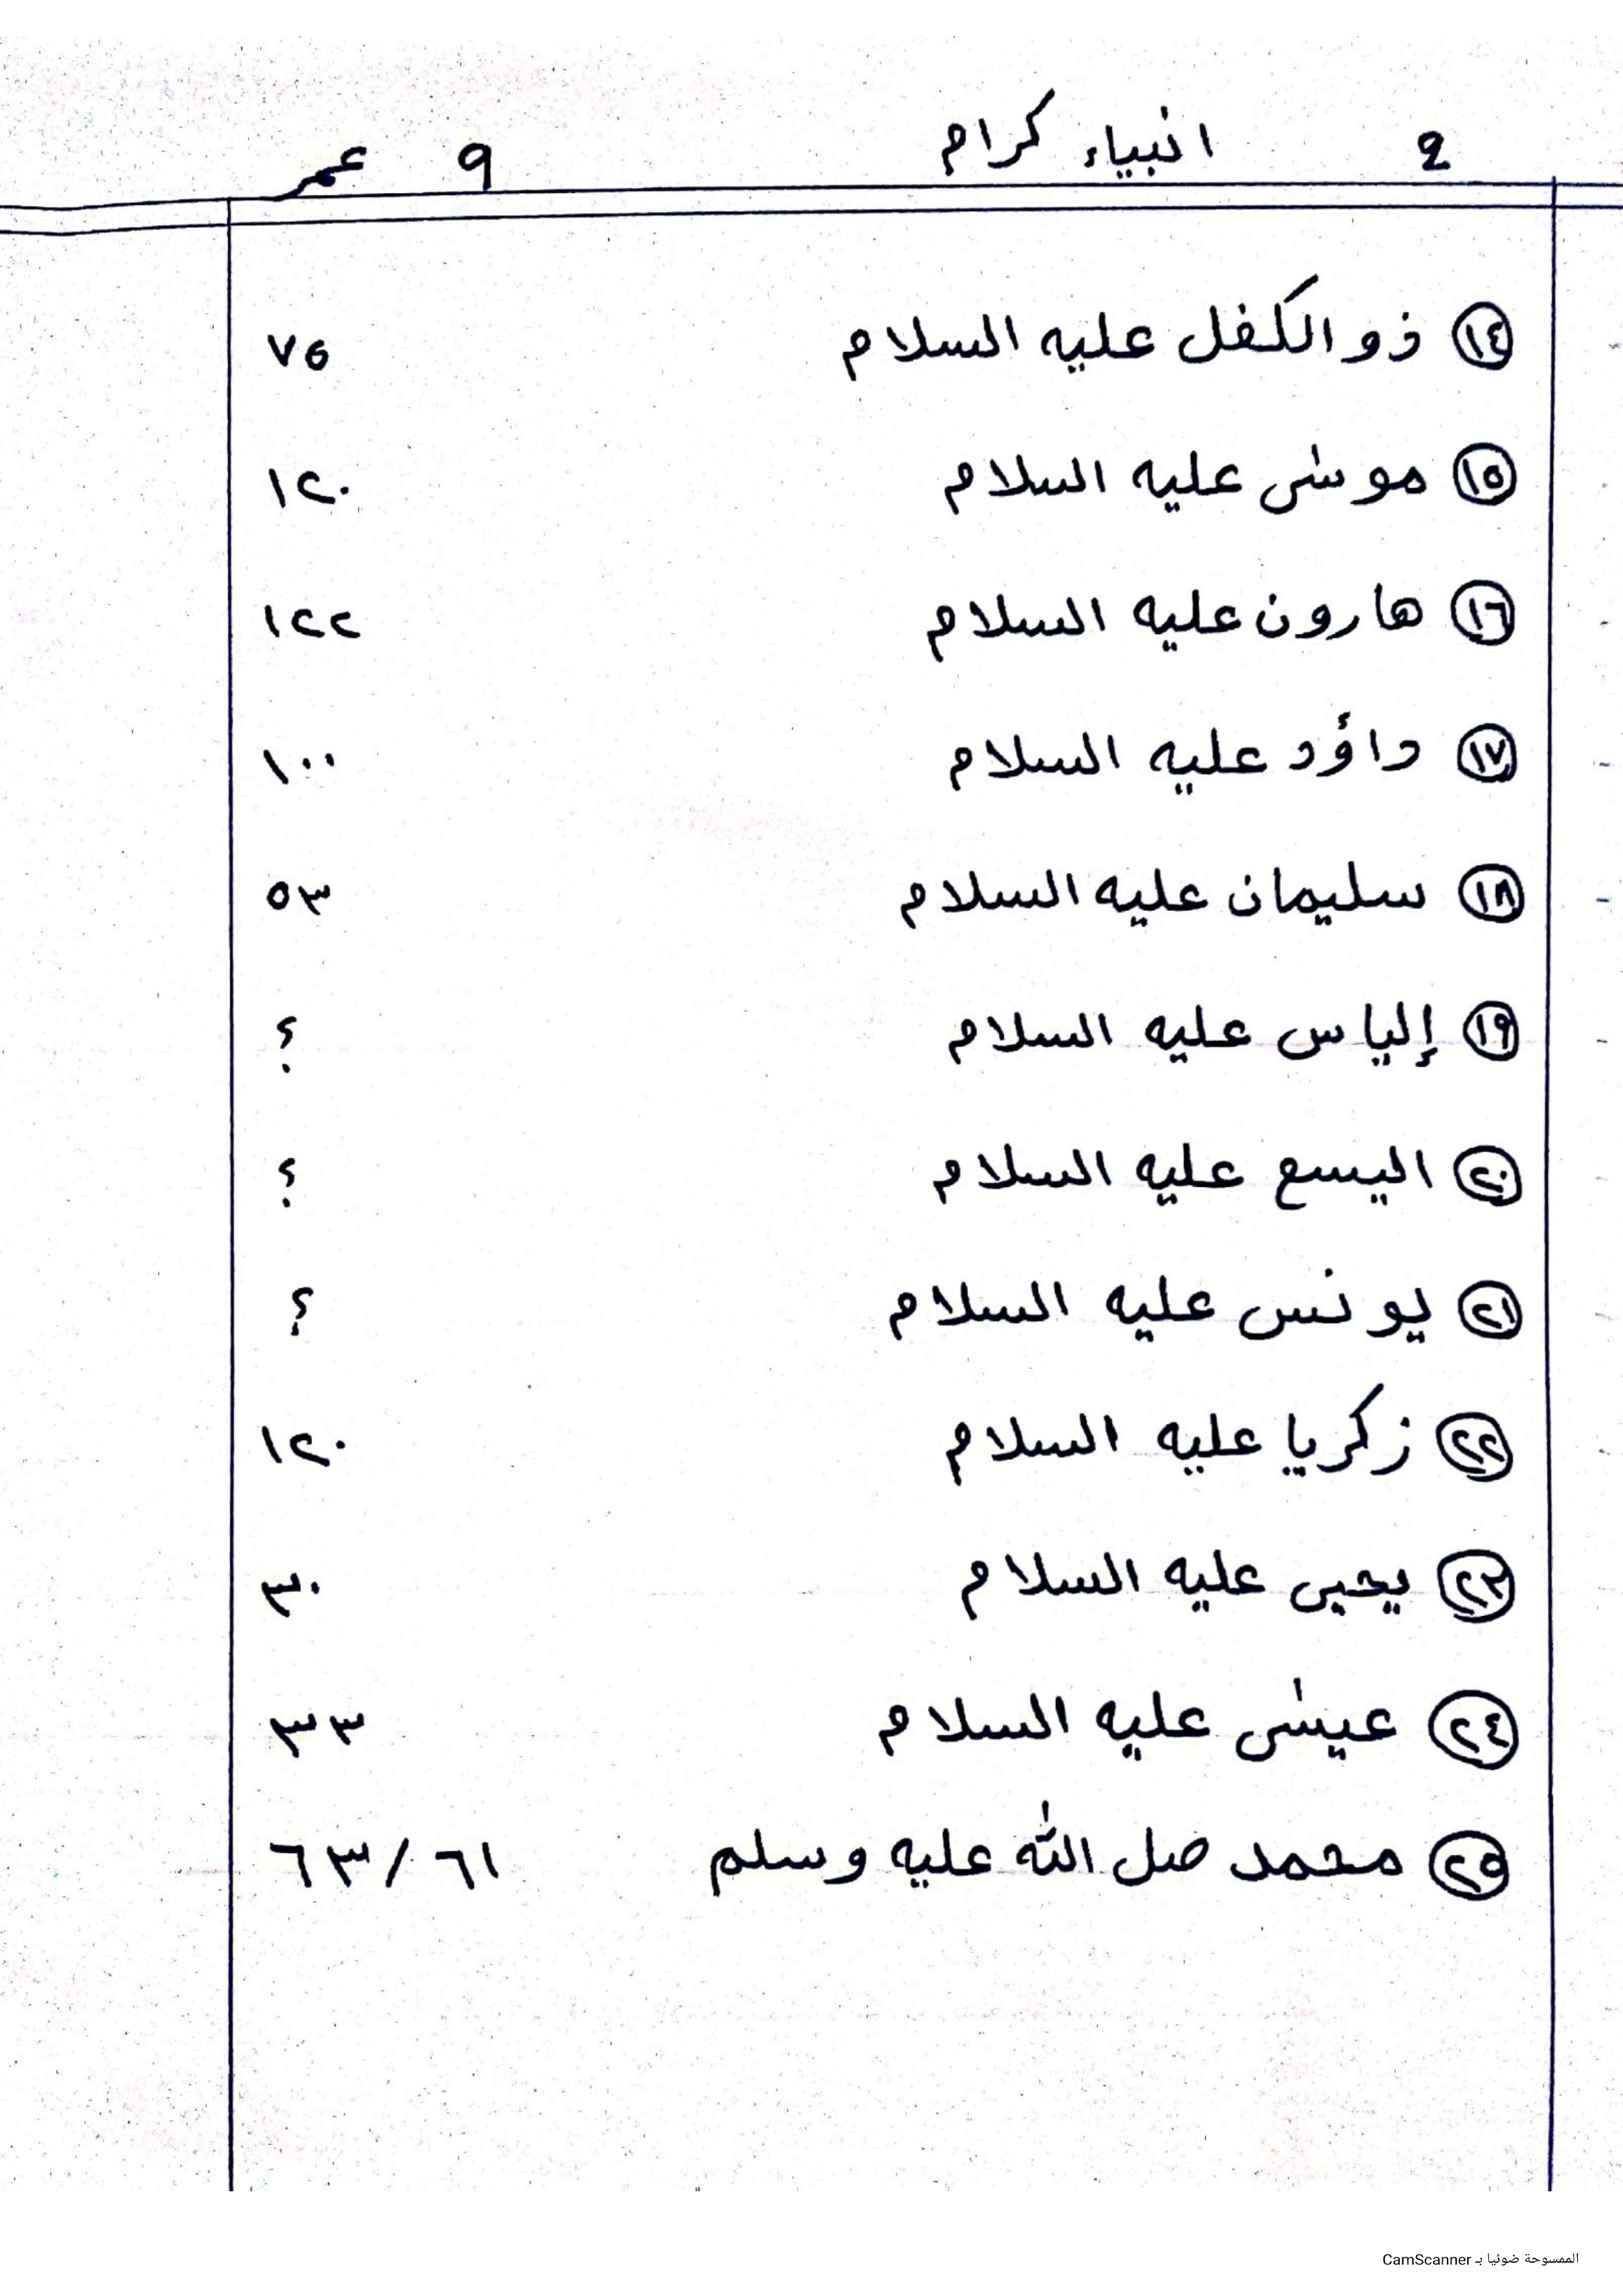 2 انبياء كرام 9 عمر
١٤ ذو الكفل عليه السلام ٧٥
١٥ موسٰى عليه السلام ١٢٠
١٦ هارون عليه السلام ١٢٢
١٧ داؤد عليه السلام ١٠٠
١٨ سليمان عليه السلام ٥٣
١٩ إلياس عليه السلام ؟
٢٠ اليسع عليه السلام ؟
٢١ يونس عليه السلام ؟
٢٢ زكريا عليه السلام ١٢٠
٢٣ يحيى عليه السلام ٣٠
٢٤ عيسٰى عليه السلام ٣٣
٢٥ محمد صل الله عليه وسلم ٦٣/٦١
الممسوحة ضوئيا بـ CamScanner